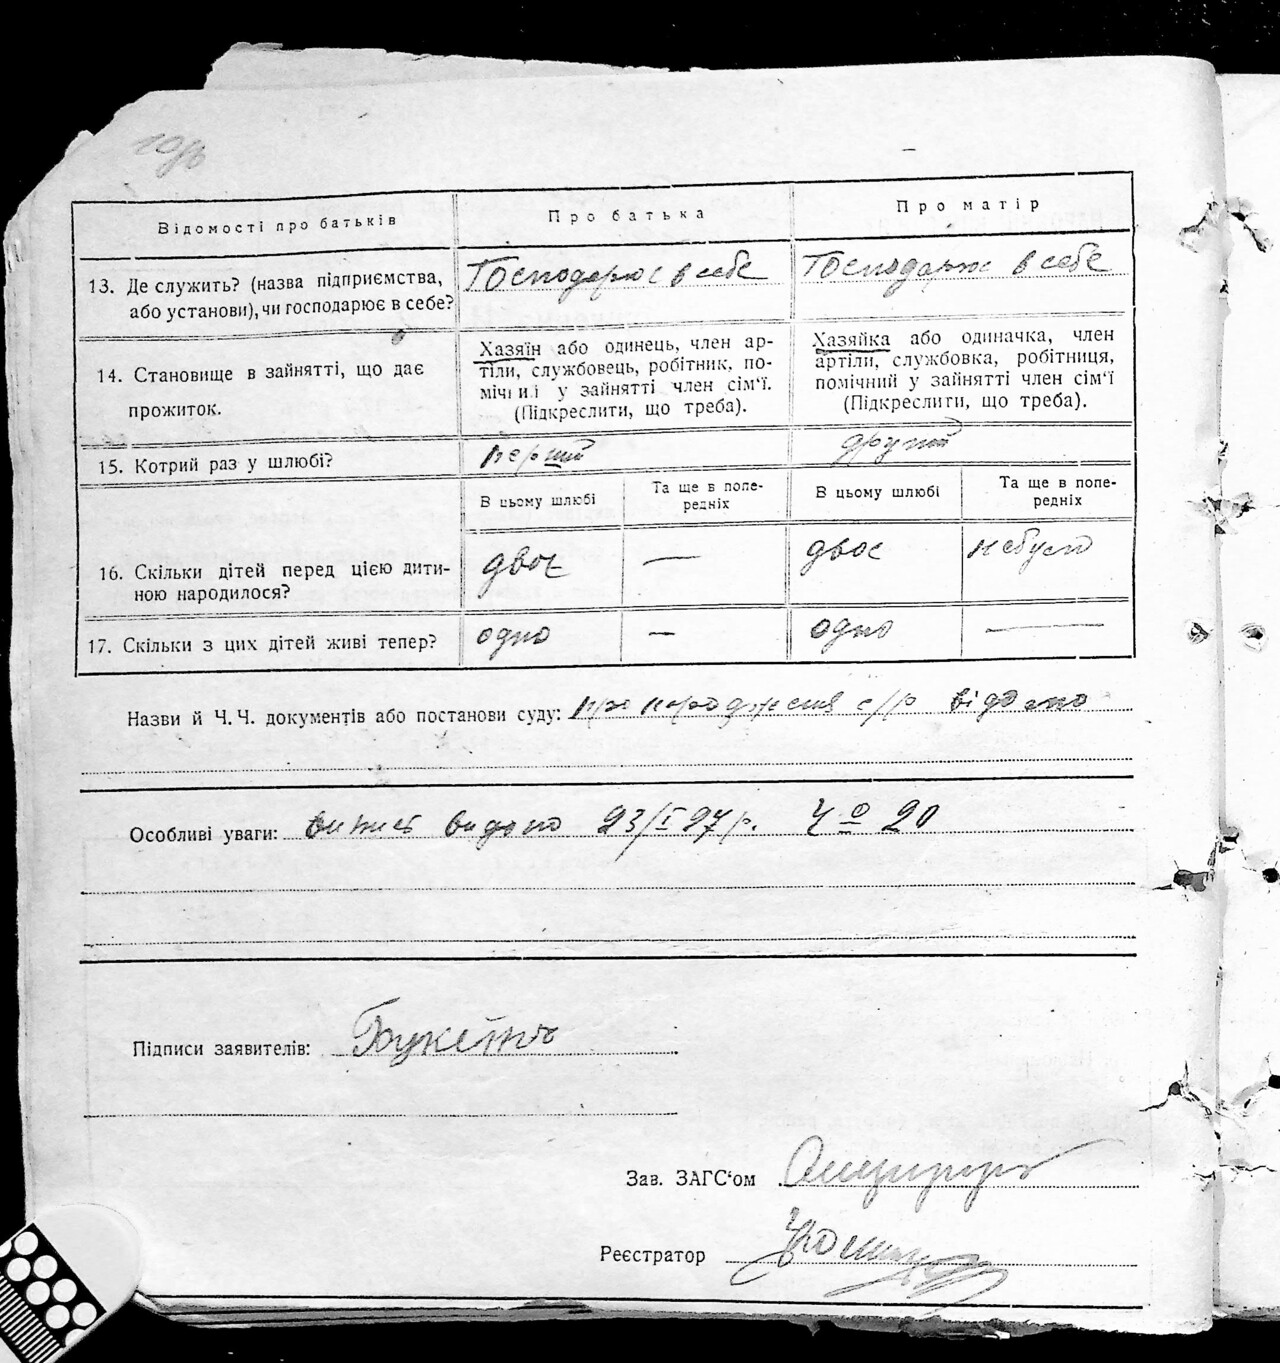 Відомості про батьків
Про батька
Про матір
13. Де служить? (назва підприємства, або установи), чи господарює в себе?
Господарює в себе
Господарює в себе
14. Становище в зайнятті, що дає прожиток.
Хазяїн або одинець, член ар-
тіли, службовець, робітник, по-
мічний у зайнятті член сім'ї.
(Підкреслити, що треба).
Хазяйка або одиначка, член
артіли, службовка, робітниця,
помічний у зайнятті член сім'ї
(Підкреслити, що треба).
15. Котрий раз у шлюбі?
перший
другий
В цьому шлюбі
Та ще в попе-
редніх
В цьому шлюбі
Та ще в попе-
редніх
16. Скільки дітей перед цією дити-
ною народилося?
двоє
—
двоє
небуло
17. Скільки з цих дітей живі тепер?
одно
—
одно
—
Назви й Ч.Ч. документів або постанови суду: про народження с/р відомо
Особливі уваги: видано 23/I 27 р. Ч 20
Підписи заявителів:
Зав. ЗАГС'ом
Реєстратор